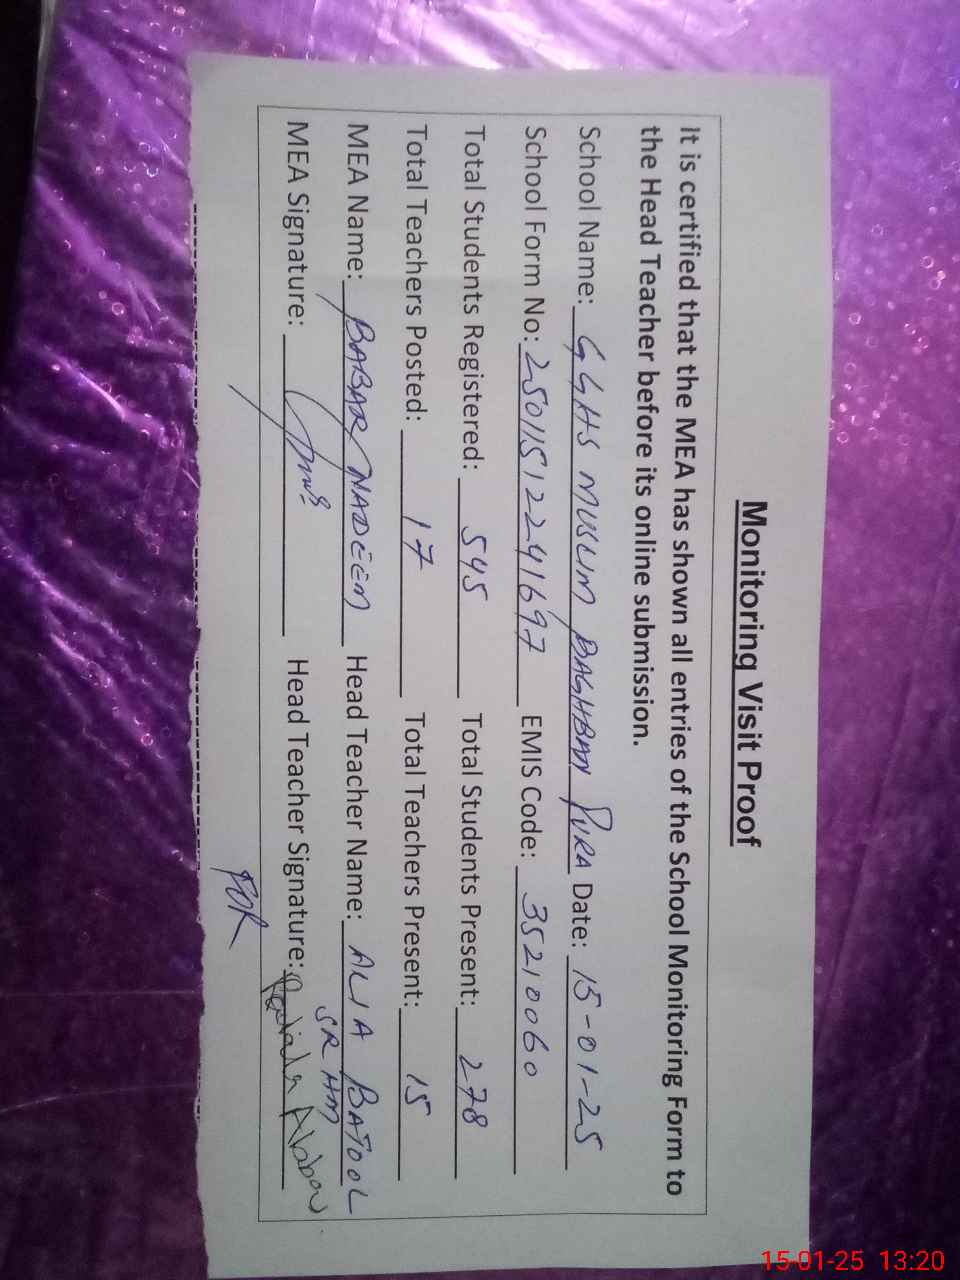 Monitoring Visit Proof
It is certified that the MEA has shown all entries of the School Monitoring Form to
the Head Teacher before its online submission.
School Name: GGHS MUSLIM BAGHBAN PURA Date: 15-01-25
School Form No: 25011512241697 EMIS Code: 35210060
Total Students Registered: 545 Total Students Present: 278
Total Teachers Posted: 17 Total Teachers Present: 15
MEA Name: BABAR NADEEM Head Teacher Name: ALIA BATOOL
SR HM
MEA Signature: Head Teacher Signature:
FOR
15-01-25 13:20